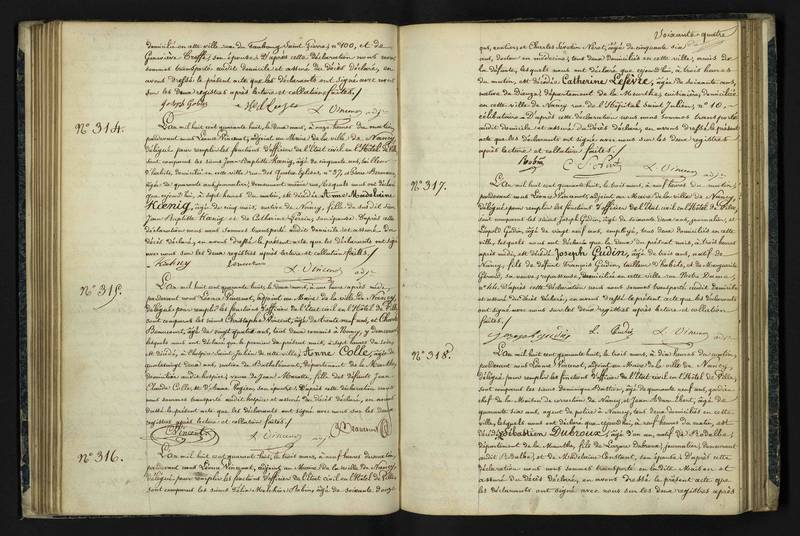 domiciliés en cette ville rue du Faubourg Saint Pierre, n° 100, et de
Geneviève Treffé, son épouse. D'après cette déclaration nous nous
sommes transporté audit domicile et assuré du décès déclaré, en
avons dressé le présent acte que les déclarants ont signé avec nous
sur les deux registres après lecture et collation faites.
L. Vincent adj.
N° 314.
L'an mil huit cent quarante huit, le deux mars, à onze heures du matin,
pardevant nous Léonce Vincent, adjoint au Maire de la ville de Nancy,
délégué pour remplir les fonctions d'officier de l'état civil en l'Hôtel de Ville,
sont comparus les sieurs Jean Baptiste Kœnig, âgé de cinquante ans, tailleur
d'habits, domicilié en cette ville rue des Quatre Églises, n° 37, et
âgé de quarante ans, journalier, demeurant même rue, lesquels nous ont déclaré
que aujourd'hui, à sept heures du matin, est décédée Anne Magdeleine
Kœnig, âgée de vingt mois, native de Nancy, fille du susdit sieur
Jean Baptiste Kœnig et de Catherine son épouse. D'après cette
déclaration nous nous sommes transporté audit domicile et assuré du
décès déclaré, en avons dressé le présent acte que les déclarants ont signé
avec nous sur les deux registres après lecture et collation faites.
L. Vincent adj.
N° 315.
L'an mil huit cent quarante huit, le deux mars, à une heure après midi,
pardevant nous Léonce Vincent, adjoint au Maire de la ville de Nancy,
délégué pour remplir les fonctions d'officier de l'état civil en l'Hôtel de Ville
sont comparus les sieurs Christophe Vincent, âgé de trente neuf ans, et Charles
Beaucourt, âgé de vingt quatre ans, tous deux commis à Nancy, y demeurant
lesquels nous ont déclaré que le premier du présent mois, à sept heures du soir,
est décédée, à l'hospice Saint Julien de cette ville, Anne Colle, âgée de
quatre vingt deux ans, native de Barthélémont, département de la Meurthe,
domiciliée audit hospice, veuve de Jean Marotte, fille des défunts Jean
Claude Colle, et d'Anne son épouse. D'après cette déclaration nous
nous sommes transporté audit hospice et assuré du décès déclaré, en avons
dressé le présent acte que les déclarants ont signé avec nous sur les deux
registres après lecture et collation faites.
C. Vincent L. Vincent adj.
N° 316.
L'an mil huit cent quarante huit, le trois mars, à neuf heures du matin,
pardevant nous Léonce Vincent, adjoint au Maire de la ville de Nancy,
délégué pour remplir les fonctions d'officier de l'état civil en l'Hôtel de Ville
sont comparus les sieurs Félix Melchior Robin, âgé de soixante
Soixante-quatre
ans, rentier, et Charles Sébastien Néret, âgé de cinquante six
ans, docteur en médecine, tous deux domiciliés en cette ville, amis de
la défunte, lesquels nous ont déclaré que aujourd'hui, à trois heures
du matin, est décédée Catherine Lefèvre, âgée de soixante ans,
native de département de la Meurthe, cuisinière, domiciliée
en cette ville de Nancy rue de l'Hôpital Saint Julien, n° 10,
célibataire. D'après cette déclaration nous nous sommes transporté
audit domicile et assuré du décès déclaré, en avons dressé le présent
acte que les déclarants ont signé avec nous sur les deux registres
après lecture et collation faites.
Robin C. S. Néret L. Vincent adj.
N° 317.
L'an mil huit cent quarante huit, le trois mars, à neuf heures du matin,
pardevant nous Léonce Vincent, adjoint au Maire de la ville de Nancy,
délégué pour remplir les fonctions d'officier de l'état civil en l'Hôtel de Ville,
sont comparus les sieurs Joseph Gudin, âgé de soixante deux ans, journalier, et
Léopold Gudin, âgé de vingt neuf ans, employé, tous deux domiciliés en cette
ville, lesquels nous ont déclaré que le deux du présent mois, à trois heures
après midi, est décédé Joseph Gudin, âgé de trois ans, natif de
Nancy, fils de défunt François Gudin, tailleur d'habits, et de Marguerite
sa veuve, repasseuse, domiciliée en cette ville rue Notre Dame,
D'après cette déclaration nous nous sommes transporté audit domicile
et assuré du décès déclaré, en avons dressé le présent acte que les déclarants
ont signé avec nous sur les deux registres après lecture et collation
faites.
L. Gudin L. Vincent adj.
N° 318.
L'an mil huit cent quarante huit, le trois mars, à dix heures du matin,
pardevant nous Léonce Vincent, adjoint au Maire de la ville de Nancy,
délégué pour remplir les fonctions d'officier de l'état civil en l'Hôtel de Ville,
sont comparus les sieurs Dominique âgé de quarante neuf ans, gardien
chef de la Maison de correction de Nancy, et Jean Adam âgé de
quarante six ans, agent de police à Nancy, tous deux domiciliés en cette
ville, lesquels nous ont déclaré que aujourd'hui, à neuf heures du matin, est
décédé Sébastien Dubroux, âgé d'un an, natif de
département de la Meurthe, fils de Lazare Dubroux, journalier, demeurant
audit et de Madeleine Constant, son épouse. D'après cette
déclaration nous nous sommes transporté en ladite Maison et
assuré du décès déclaré, en avons dressé le présent acte que
les déclarants ont signé avec nous sur les deux registres après